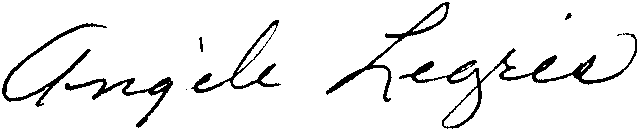 Angèle Legris